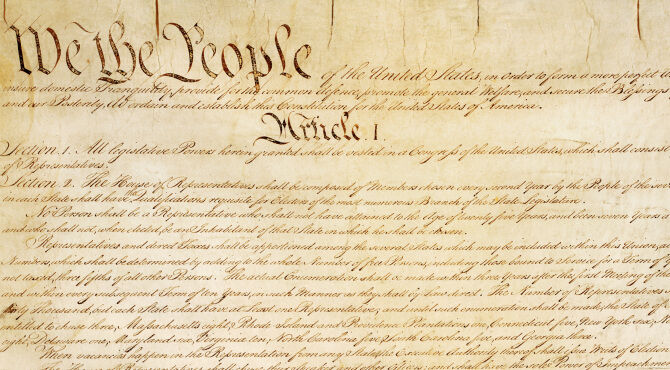 We the People of the United States, in Order to form a more perfect
insure domestic Tranquility, provide for the common defence, promote the general Welfare, and secure the Blessings
and our Posterity, do ordain and establish this Constitution for the United States of America.
Article. I.
Section. 1. All legislative Powers herein granted shall be vested in a Congress of the United States, which shall consist
of Representatives.
Section. 2. The House of Representatives shall be composed of Members chosen every second Year by the People of the
in each State shall have the Qualifications requisite for Electors of the most numerous Branch of the State Legislature.
No Person shall be a Representative who shall not have attained to the Age of twenty five Years, and been seven Years
and who shall not, when elected, be an Inhabitant of that State in which he shall be chosen.
Representatives and direct Taxes shall be apportioned among the several States which may be included within this Union,
Numbers, which shall be determined by adding to the whole Number of free Persons, including those bound to Service for a Term of
not taxed, three fifths of all other Persons. The actual Enumeration shall be made within three Years after the first Meeting of the
and within every subsequent Term of ten Years, in such Manner as they shall by Law direct. The Number of Representatives
thirty Thousand, but each State shall have at Least one Representative; and until such enumeration shall be made, the State of
entitled to chuse three, Massachusetts eight, Rhode Island and Providence Plantations one, Connecticut five, New York six,
eight, Delaware one, Maryland six, Virginia ten, North Carolina five, South Carolina five, and Georgia three.
When vacancies happen in the Representation from any State, the Executive Authority thereof shall issue Writs of Election